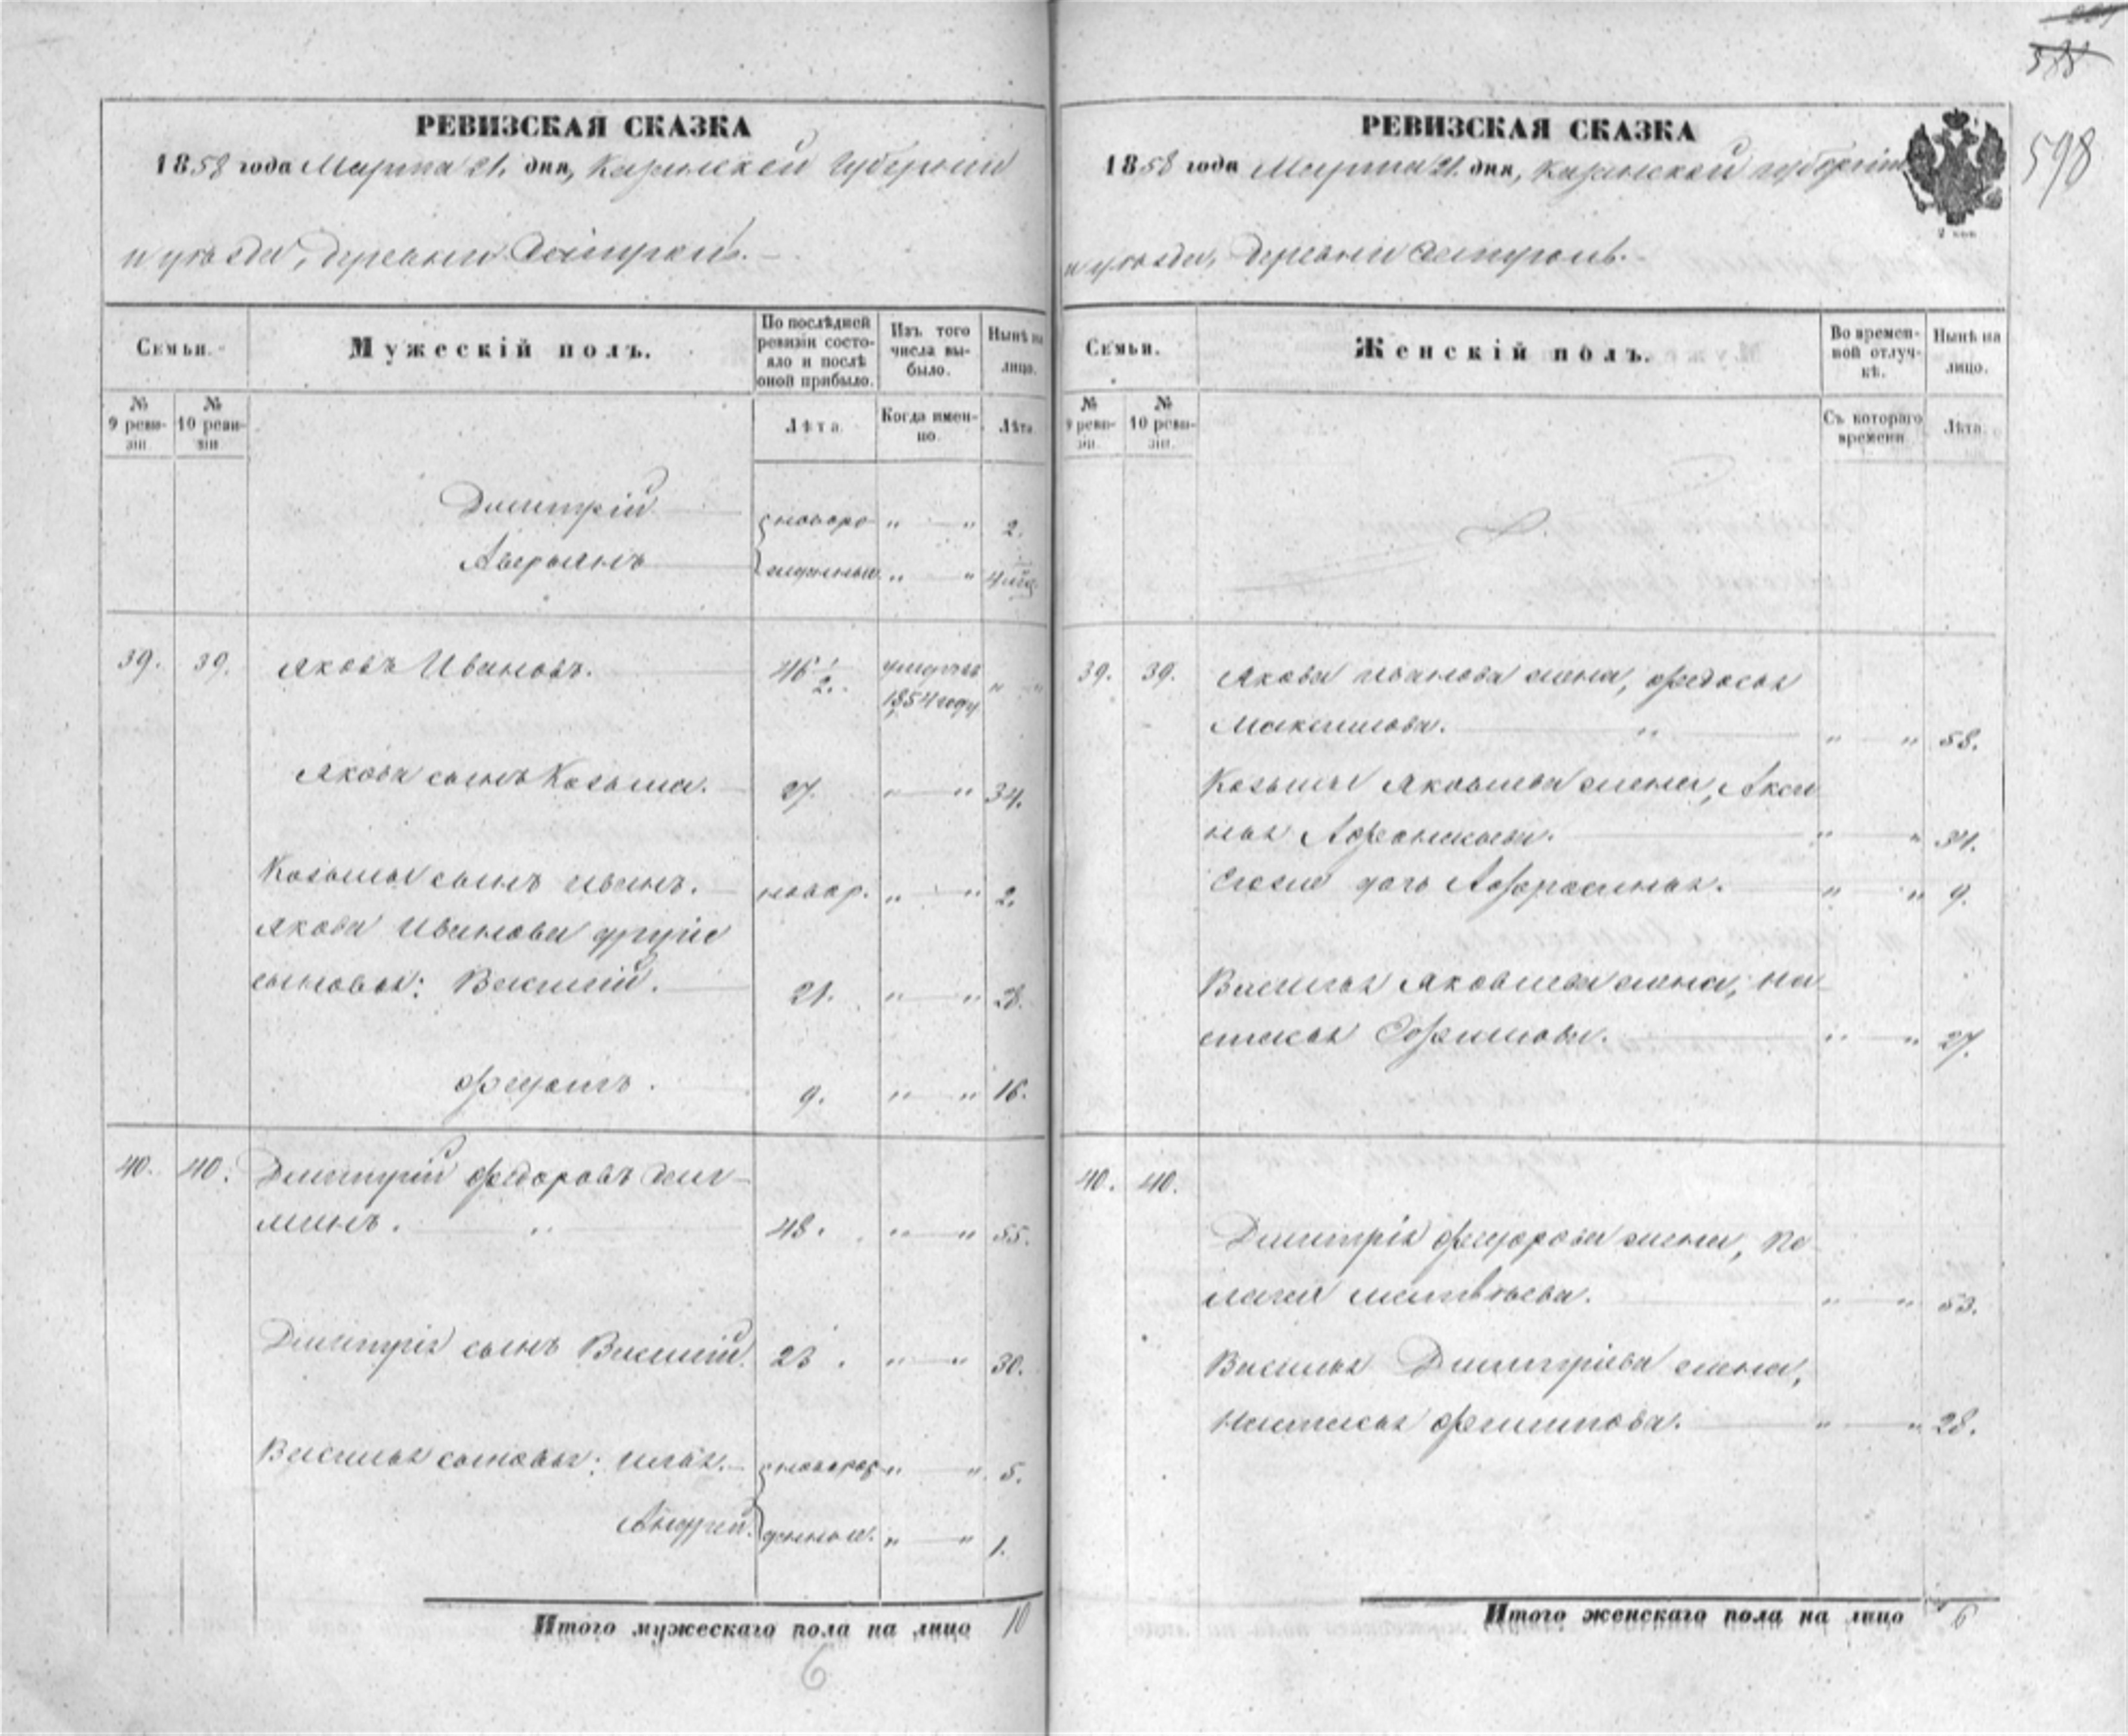 РЕВИЗСКАЯ СКАЗКА
1858 года Марта 21. дня, Казанской Губернии
и уезда, деревни
Семьи.
Мужескій полъ.
По послѣдней ревизіи состояло и послѣ оной прибыло.
Изъ того числа выбыло.
Нынѣ на лицо.
№ 9 ревизіи
№ 10 ревизіи
Лѣта.
Когда именно.
Лѣта.
Дмитрій новоро " " 2.
Аверьянъ жденные " " 4 мѣс.
39. 39. Яковъ Ивановъ. 46 1/2. умеръ въ 1854 году " "
Якова сынъ Козьма. 27. " " 34.
Козьмы сынъ Иванъ. новор. " " 2.
Якова Иванова другіе
сыновья: Василій. 21. " " 28.
Федотъ. 9. " " 16.
40. 40. Дмитрій Федоровъ
48. " " 55.
Дмитрія сынъ Василій. 23. " " 30.
Василья сыновья: Илья. новорож " " 5.
Андрей. денные. " " 1.
Итого мужескаго пола на лицо 10
6
588
598
РЕВИЗСКАЯ СКАЗКА
1858 года Марта 21. дня, Казанской губерніи
и уезда, деревни
Семьи.
Женскій полъ.
Во временной отлучкѣ.
Нынѣ на лицо.
№ 9 ревизіи.
№ 10 ревизіи.
Съ котораго времени
Лѣта.
39. 39. Якова Иванова жена, Федосья
Максимова. " " " 58.
Козьмы Яковлева жена, Акси
нья Афонасьева. " " 31.
Его же дочь Афросинья. " " 9.
Василья Яковлева жена, На
стасья Ефимова. " " 27.
40. 40.
Дмитрія Федорова жена, Пе
лагея Матвѣева. " " 53.
Василья Дмитріева жена,
Настасья Филипова. " " 28.
Итого женскаго пола на лицо 6